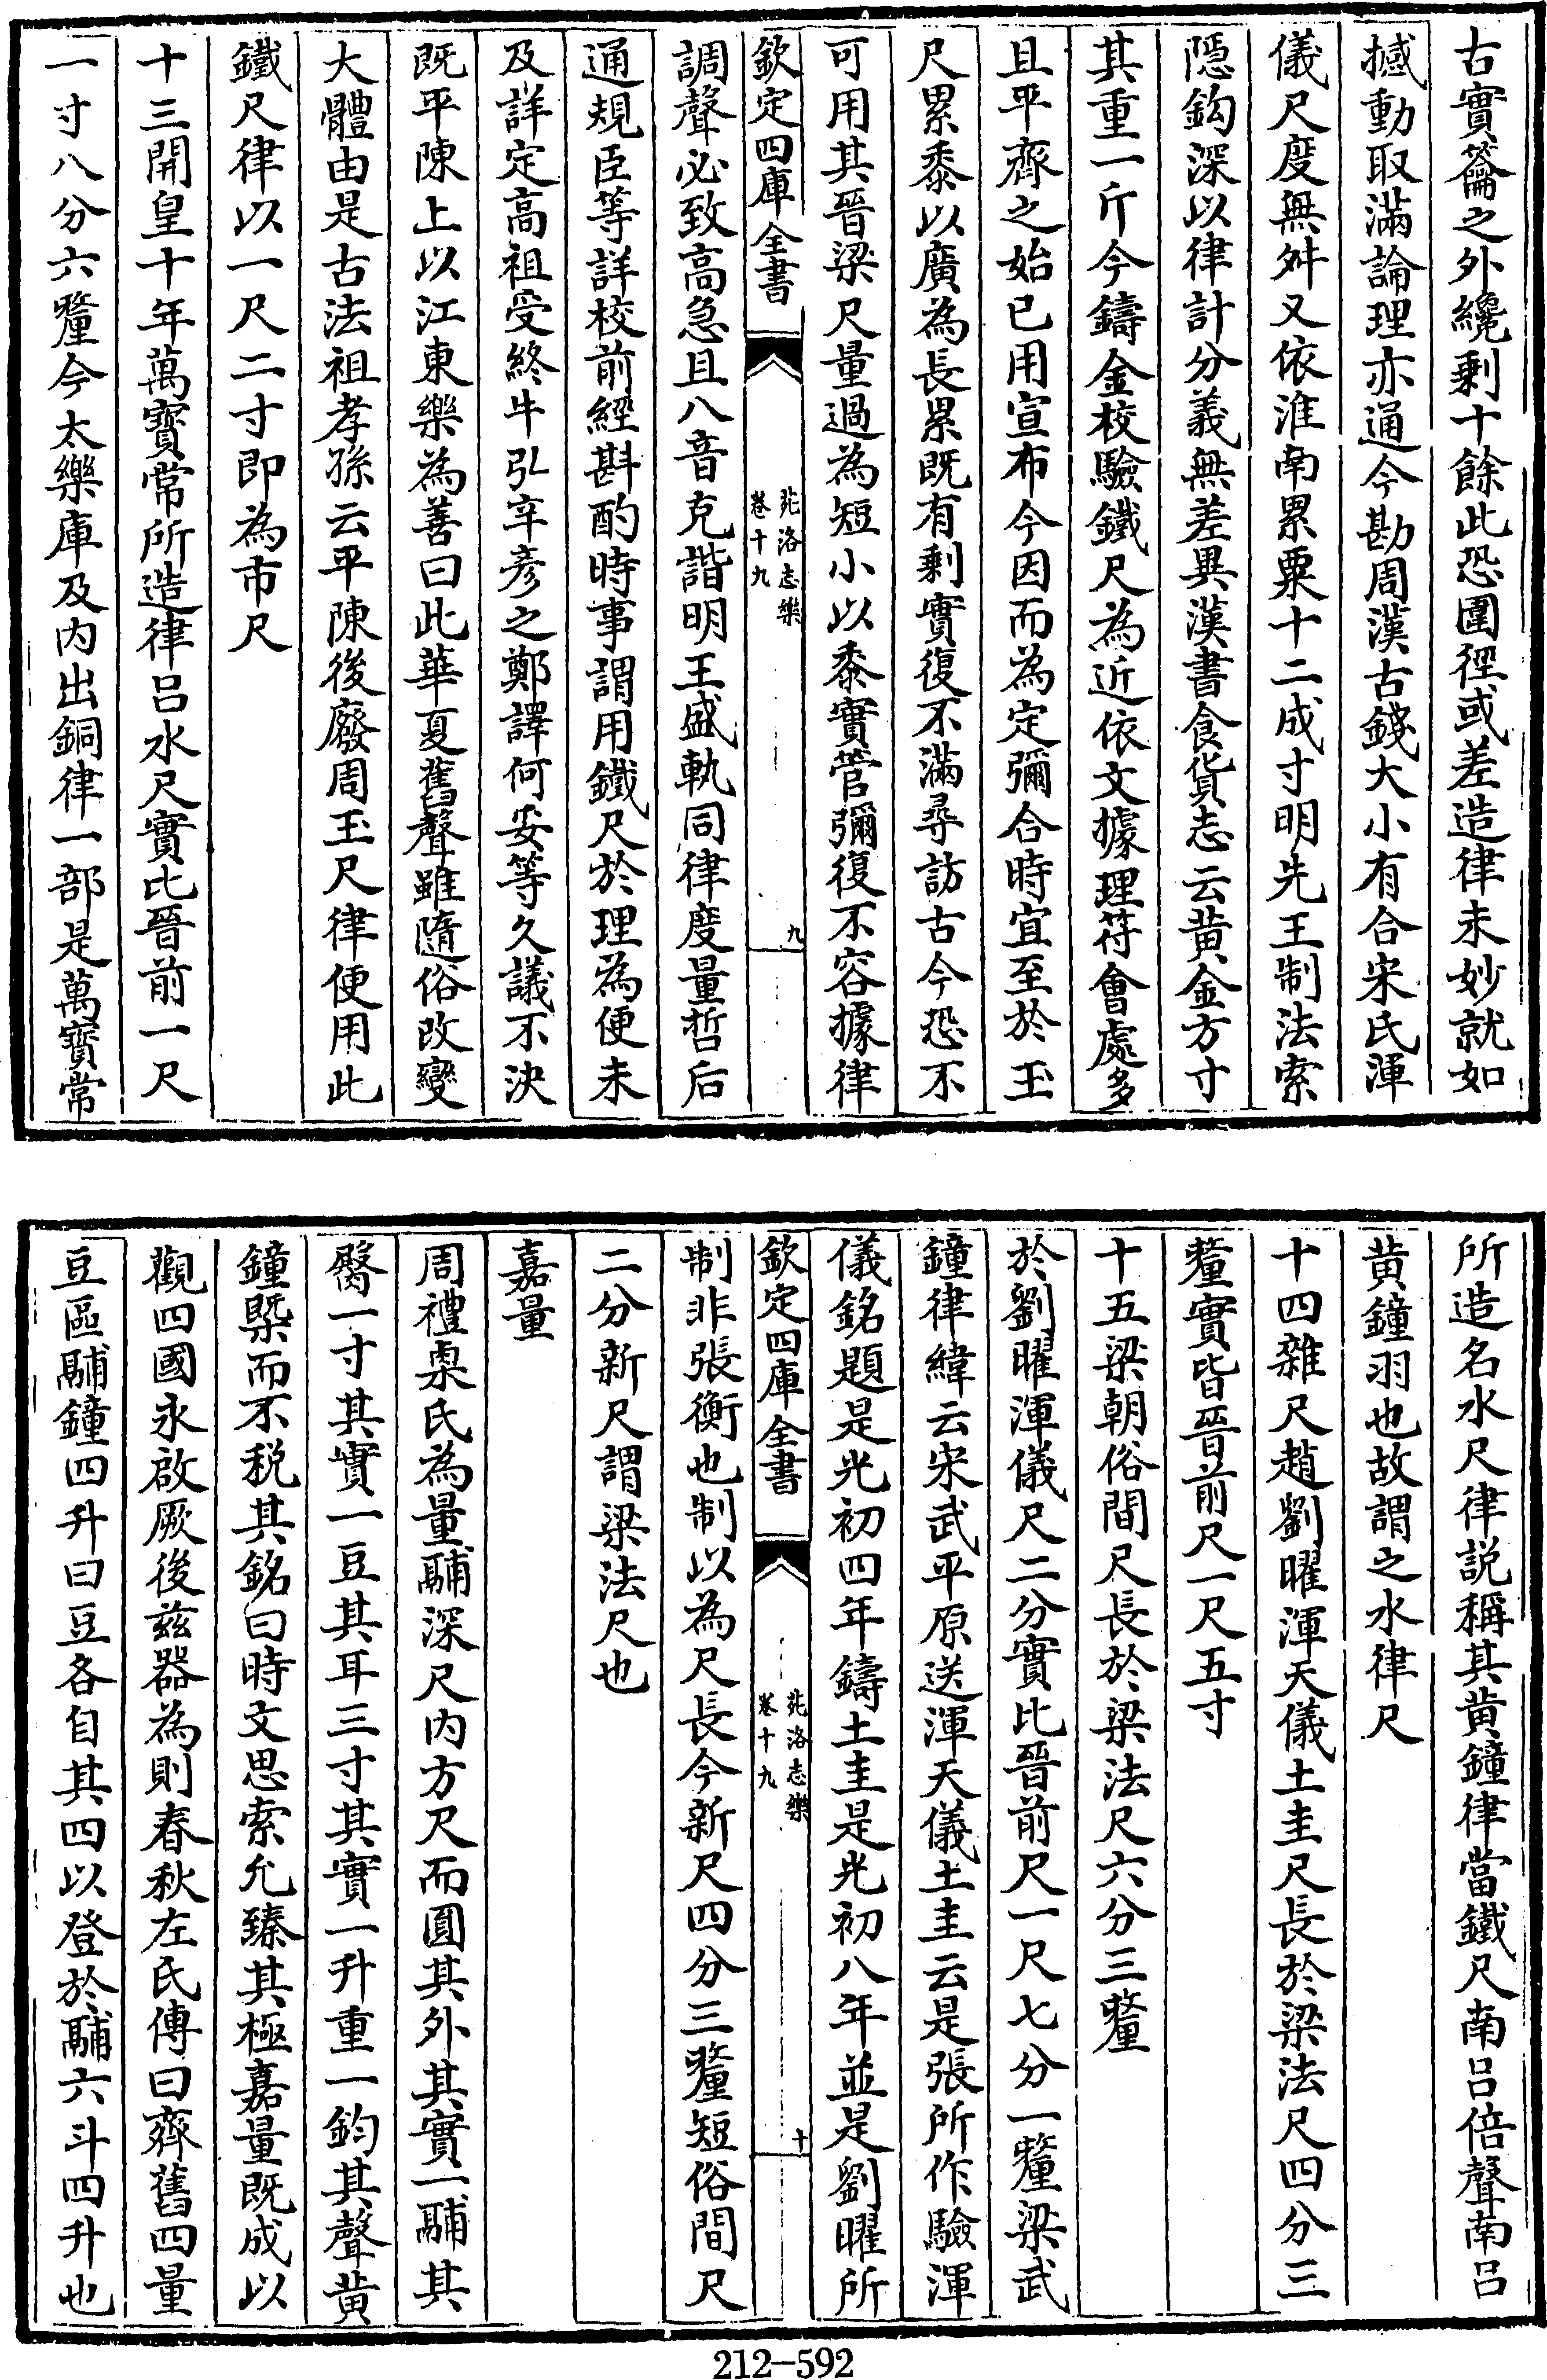 古實籥之外纔剩十餘此恐圍徑或差造律未妙就如
撼動取滿論理亦通今勘周漢古錢大小有合宋氏渾
儀尺度無舛又依淮南累粟十二成寸明先王制法索
隱鈎深以律計分義無差異漢書食貨志云黃金方寸
其重一斤今鑄金校驗鐵尺為近依文據理符會處多
且平齊之始已用宣布今因而為定彌合時宜至於玉
尺累黍以廣為長累既有剩實復不滿尋訪古今恐不
可用其晉梁尺量過為短小以黍實管彌復不容據律
欽定四庫全書
卷十九
九
調聲必致高急且八音克諧明王盛軌同律度量哲后
通規臣等詳校前經斟酌時事謂用鐵尺於理為便未
及詳定高祖受終牛弘辛彥之鄭譯何妥等久議不決
既平陳上以江東樂為善曰此華夏舊聲雖隨俗改變
大體由是古法祖孝孫云平陳後廢周玉尺律便用此
鐵尺律以一尺二寸即為市尺
十三開皇十年萬寶常所造律呂水尺實比晉前一尺
一寸八分六釐今太樂庫及內出銅律一部是萬寶常
所造名水尺律説稱其黃鐘律當鐵尺南呂倍聲南呂
黃鐘羽也故謂之水律尺
十四雜尺趙劉曜渾天儀土圭尺長於梁法尺四分三
釐實皆晉前尺一尺五寸
十五梁朝俗間尺長於梁法尺六分三釐
於劉曜渾儀尺二分實比晉前尺一尺七分一釐梁武
鐘律緯云宋武平原送渾天儀土圭云是張所作驗渾
儀銘題是光初四年鑄土圭是光初八年並是劉曜所
欽定四庫全書
卷十九
十
制非張衡也制以為尺長今新尺四分三釐短俗間尺
二分新尺謂梁法尺也
嘉量
周禮㮚氏為量鬴深尺內方尺而圓其外其實一鬴其
臋一寸其實一豆其耳三寸其實一升重一鈞其聲黃
鐘槩而不税其銘曰時文思索允臻其極嘉量既成以
觀四國永啟厥後兹器為則春秋左氏傳曰齊舊四量
豆區鬴鐘四升曰豆各自其四以登於鬴六斗四升也
212-592